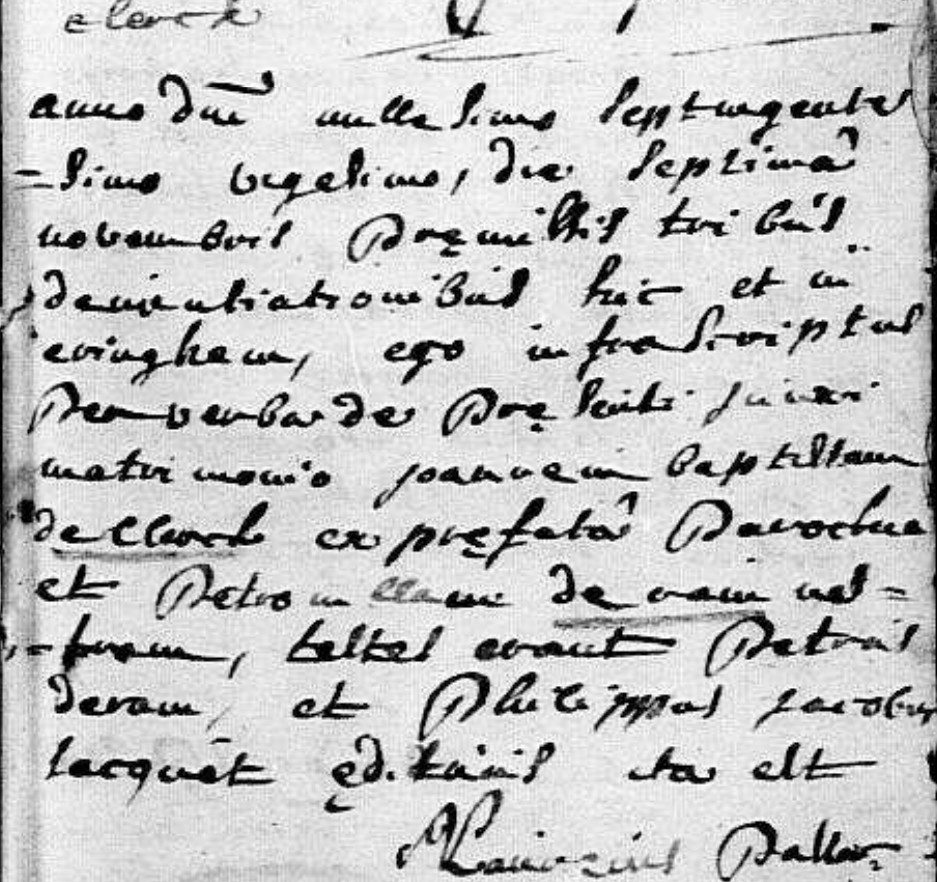 clerck
anno dni millesimo septingente
-simo vigesimo, die septimâ
novembris præmissis tribus
denuntiationibus hic et in
evinghem, ego infrascriptus
per verba de præsenti junxi
matrimonio joannem baptistam
de Clerck ex præfatâ Parochia
et Petronillam de ram nos-
-tram, testes erant Petrus
deram, et Philippus jacobus
lacquet ędituus ita est
Pastor